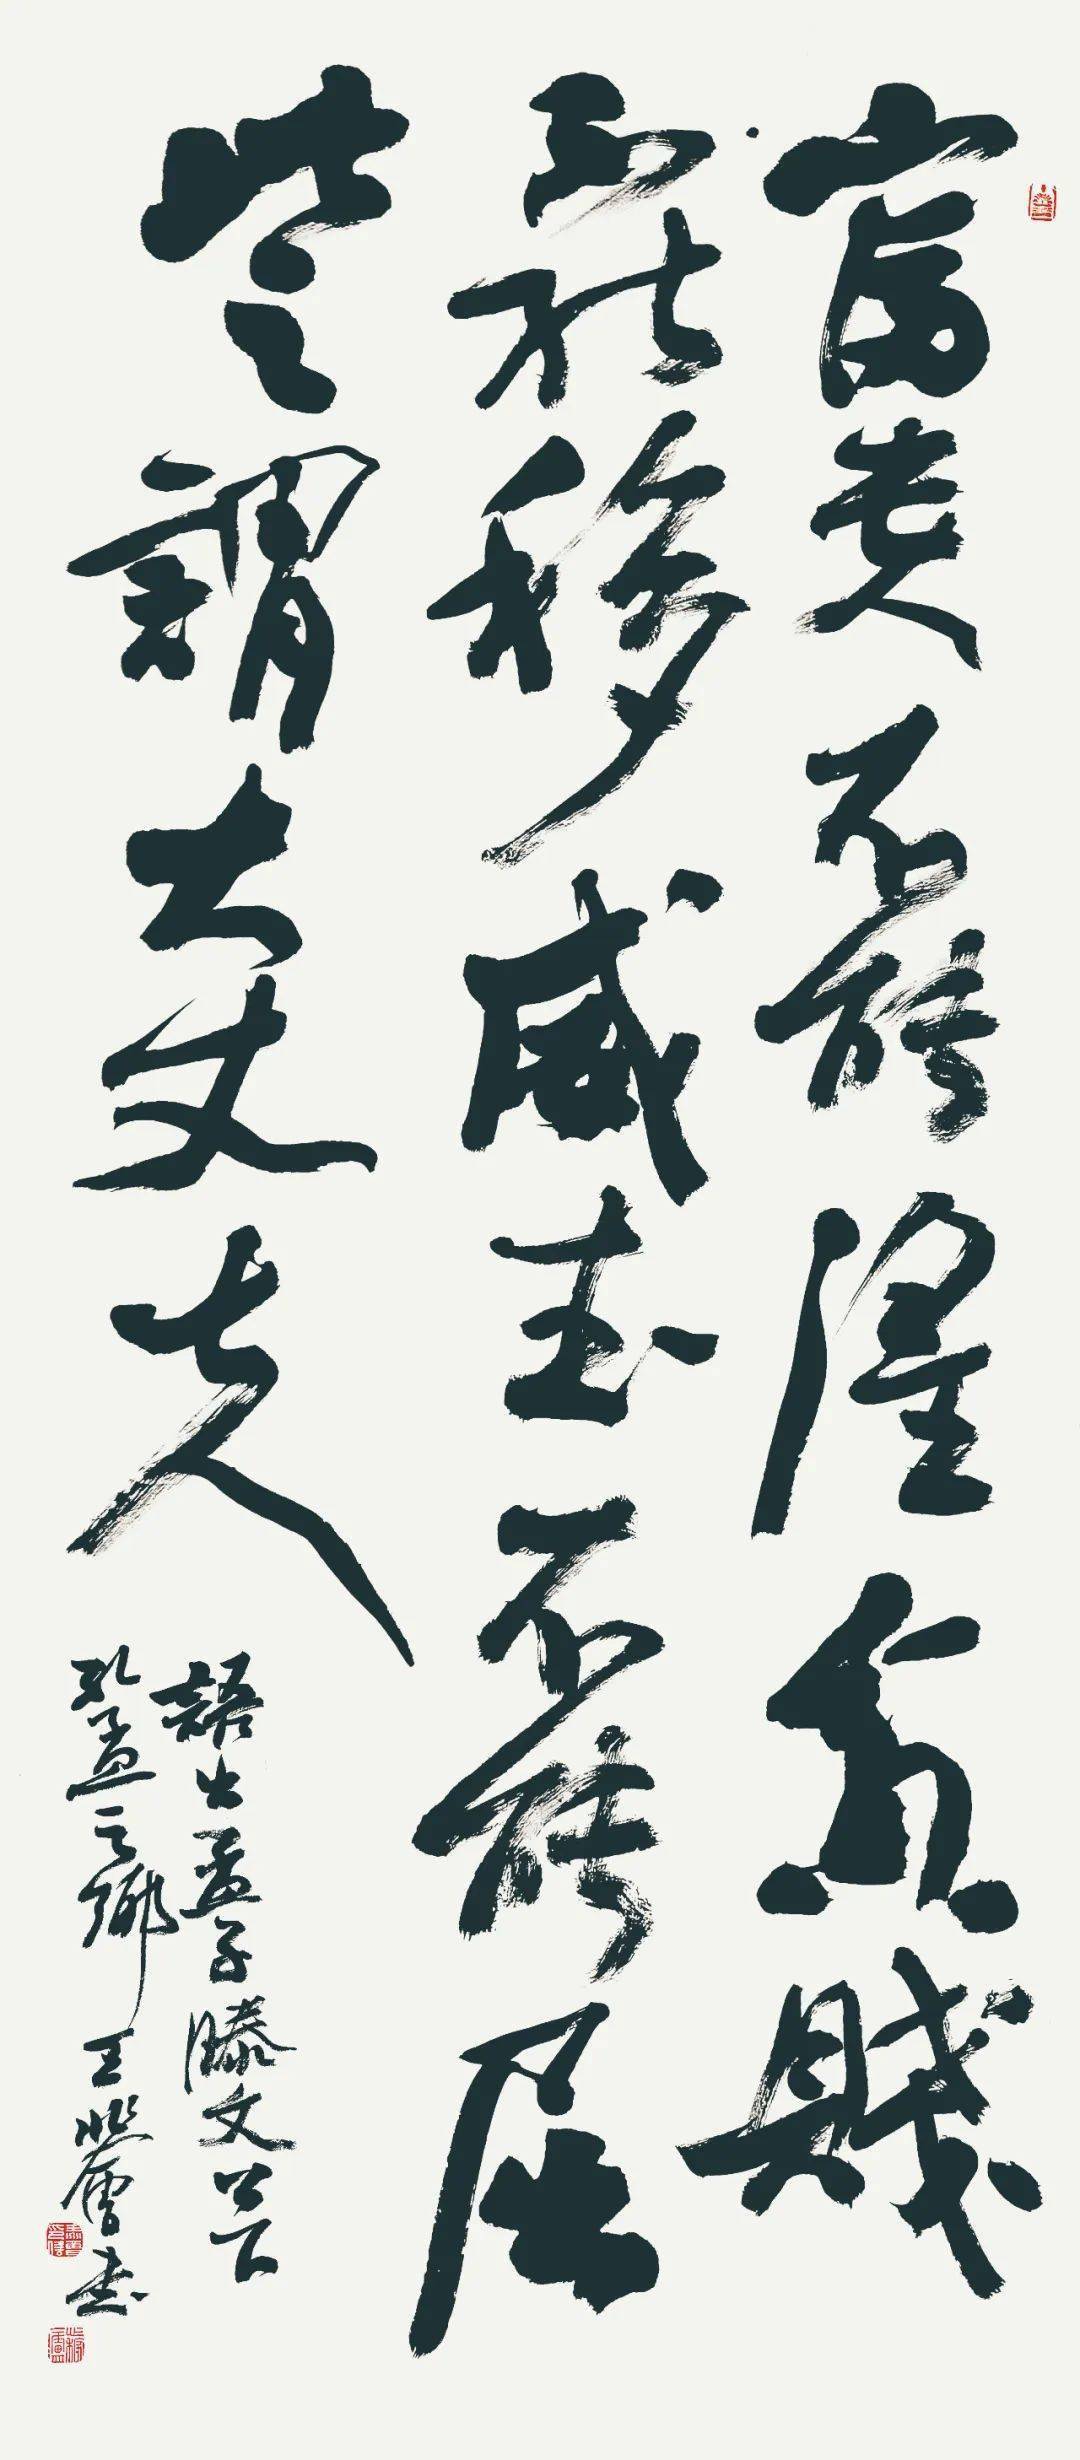 富貴不能淫貧賤
不能移威武不能屈
此之謂大丈夫
語出孟子滕文公下
孔孟之鄉王書